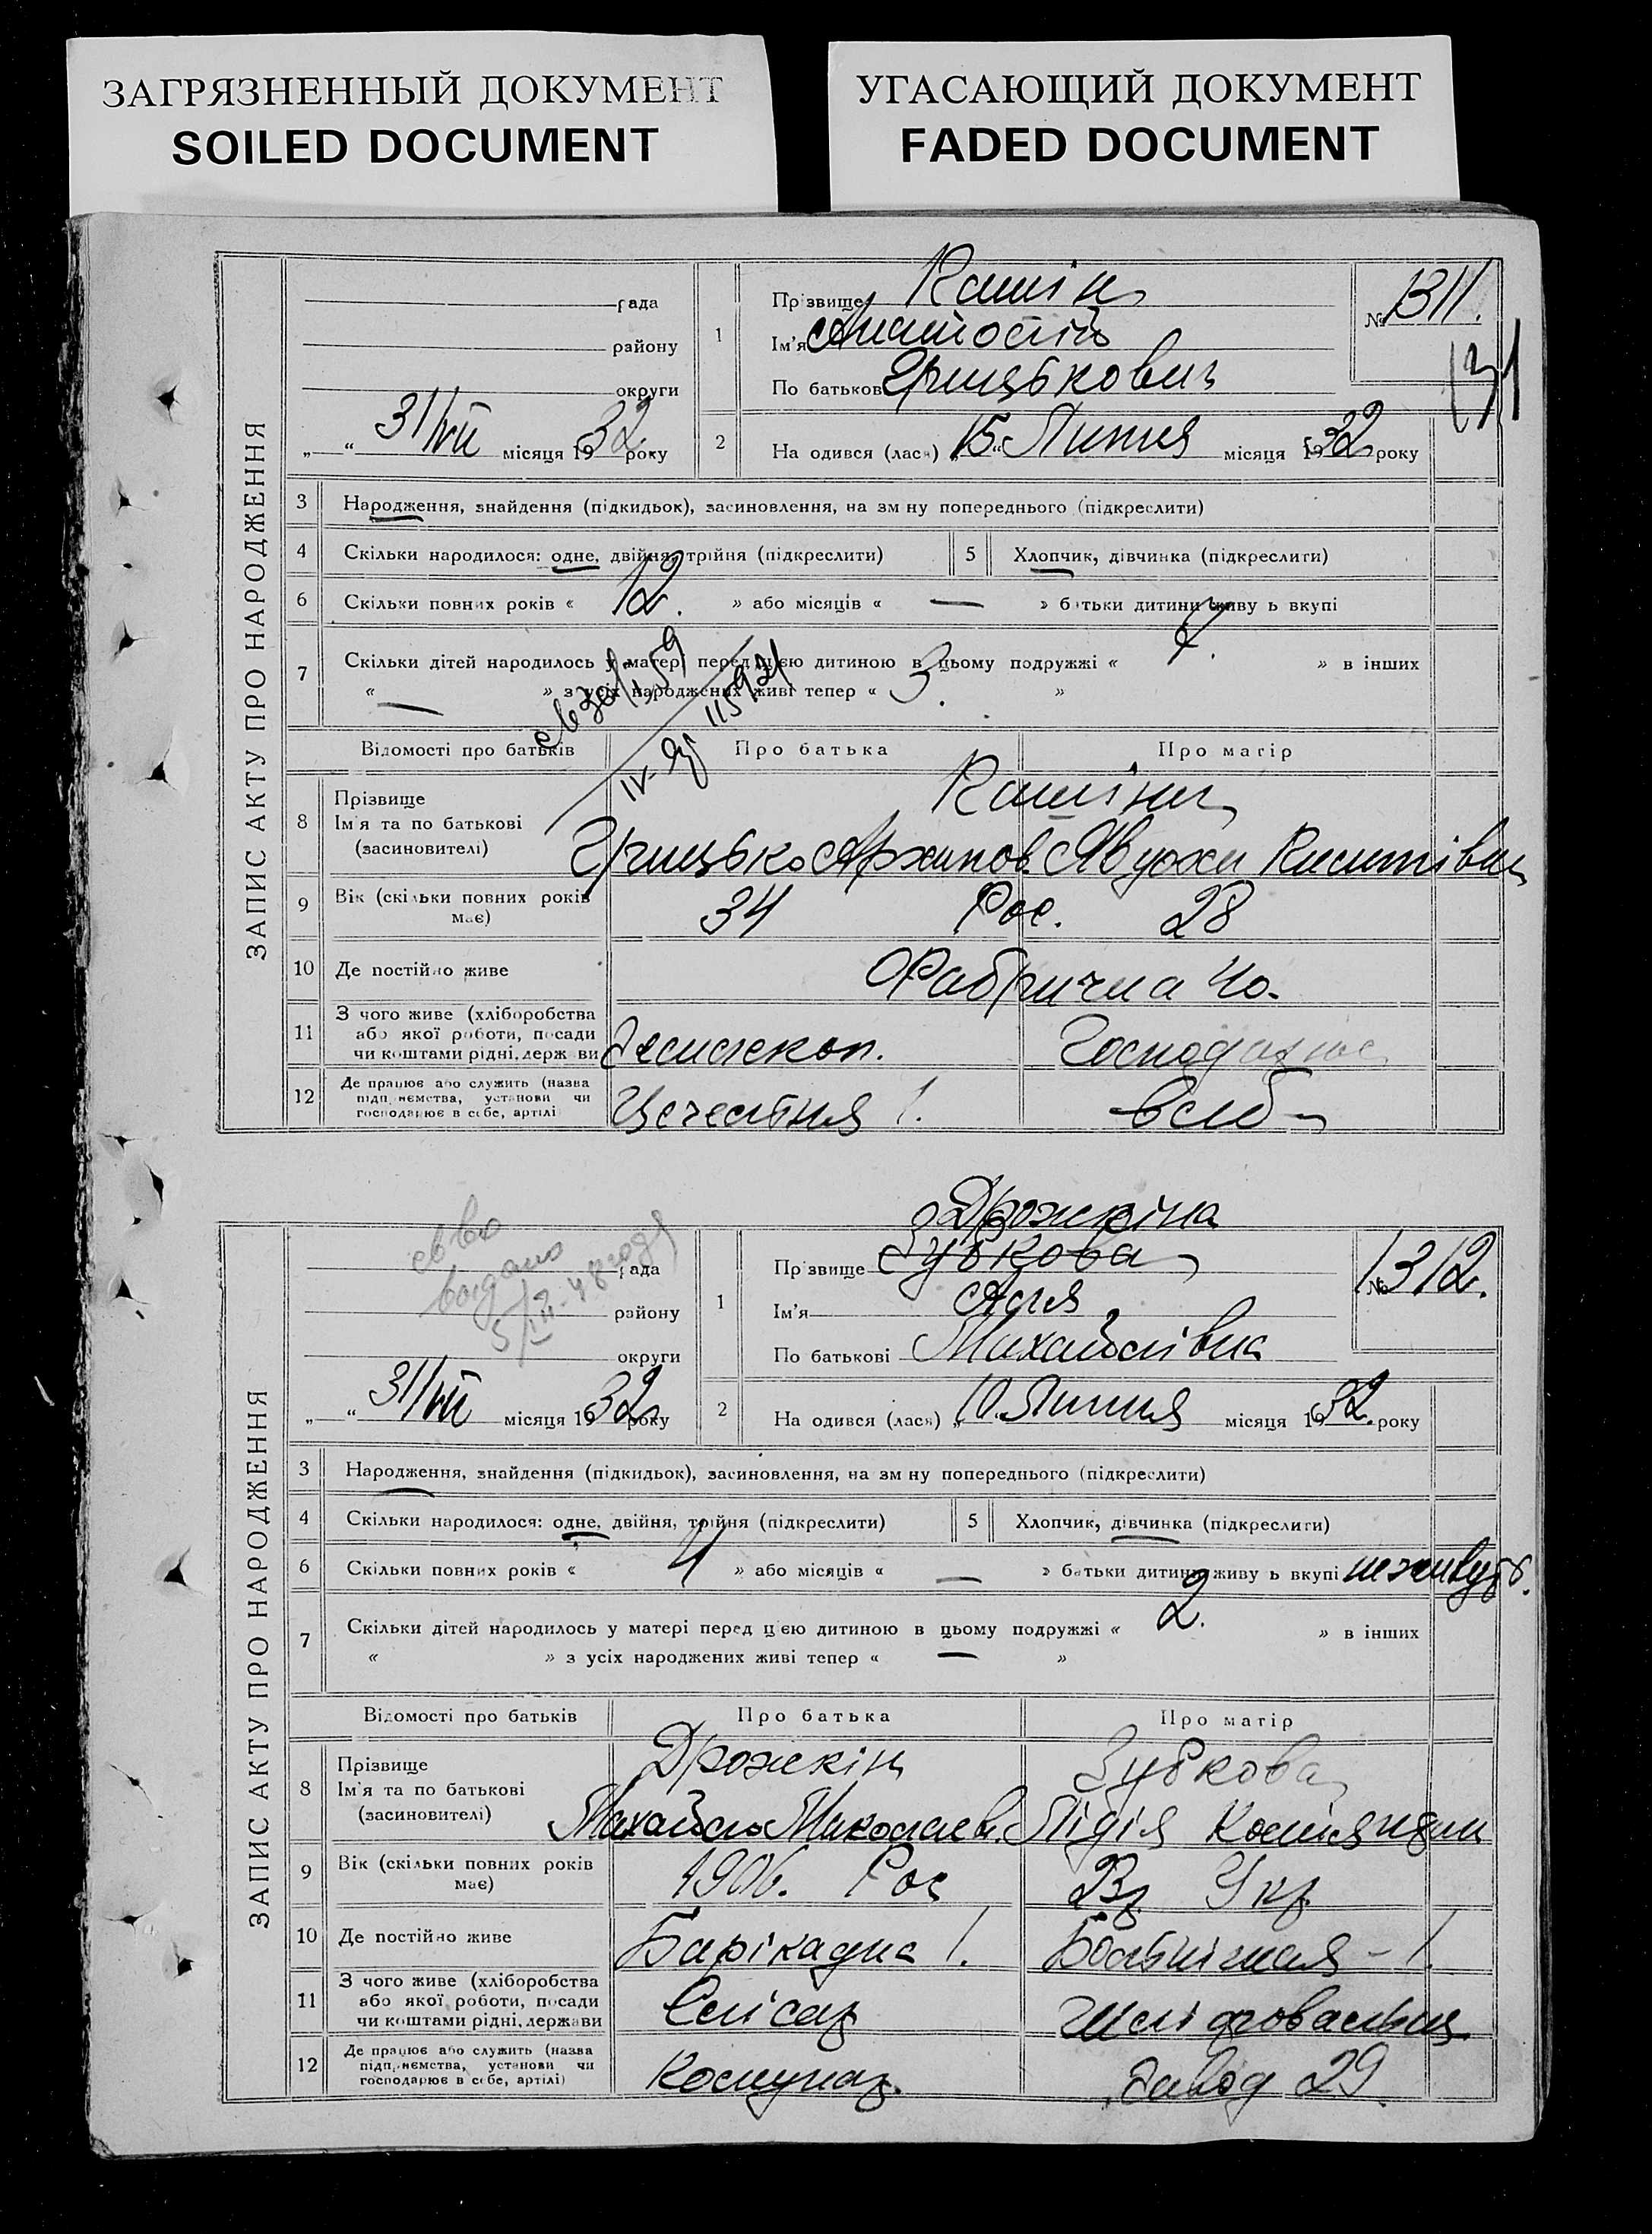 ЗАГРЯЗНЕННЫЙ ДОКУМЕНТ
SOILED DOCUMENT
УГАСАЮЩИЙ ДОКУМЕНТ
FADED DOCUMENT
ЗАПИС АКТУ ПРО НАРОДЖЕННЯ
рада
району
округи
„ “ 31/VII місяця 1932 року
1
Прізвище Кашін
Ім'я Анатолій
По батькові Грицькович
№ 1311.
131
2
На одився (лася) „15“ Липня місяця 1932 року
3 Народження, знайдення (підкидьок), засиновлення, на зм ну попереднього (підкреслити)
4 Скільки народилося: одне, двійня, трійня (підкреслити)
5 Хлопчик, дівчинка (підкреслити)
6 Скільки повних років « 12. » або місяців « — » батьки дитини живу ь вкупі
7 Скільки дітей народилось у матері перед цією дитиною в цьому подружжі « 4. » в інших
« — » з усіх народжених живі тепер « 3. »
Відомості про батьків
Про батька
Про матір
8 Прізвище
Ім'я та по батькові
(засиновителі)
Кашіни
Грицько Архипов.
Явдоха Микитівна
9 Вік (скільки повних років
має)
34 Рос. 28
10 Де постійно живе
Фабрична 40.
11 З чого живе (хліборобства
або якої роботи, посади
чи коштами рідні, держави
Землекоп.
Господарює
12 Де працює або служить (назва
підприємства, установи чи
господарює в себе, артілі
всеб
ЗАПИС АКТУ ПРО НАРОДЖЕННЯ
рада
району
округи
„ “ 31/VII місяця 1932 року
1
Дрожкіна
Прізвище Зубкова
Ім'я
По батькові Михайлівна
№ 1312.
2
На одився (лася) „10. Липня місяця 1932. року
3 Народження, знайдення (підкидьок), засиновлення, на зм ну попереднього (підкреслити)
4 Скільки народилося: одне, двійня, трійня (підкреслити)
5 Хлопчик, дівчинка (підкреслити)
6 Скільки повних років « 4 » або місяців « — » батьки дитини живу ь вкупі не живуть.
7 Скільки дітей народилось у матері перед цією дитиною в цьому подружжі « 2. » в інших
« » з усіх народжених живі тепер « — »
Відомості про батьків
Про батька
Про матір
8 Прізвище
Ім'я та по батькові
(засиновителі)
Дрожкін
Михайло Миколаєв.
Зубкова
Лідія
9 Вік (скільки повних років
має)
1906. Рос
Укр
10 Де постійно живе
Барікадна 1.
Больнічная – 1.
11 З чого живе (хліборобства
або якої роботи, посади
чи коштами рідні, держави
Слісар
Шліфовальщ.
12 Де працює або служить (назва
підприємства, установи чи
господарює в себе, артілі)
Комунар.
Завод 29